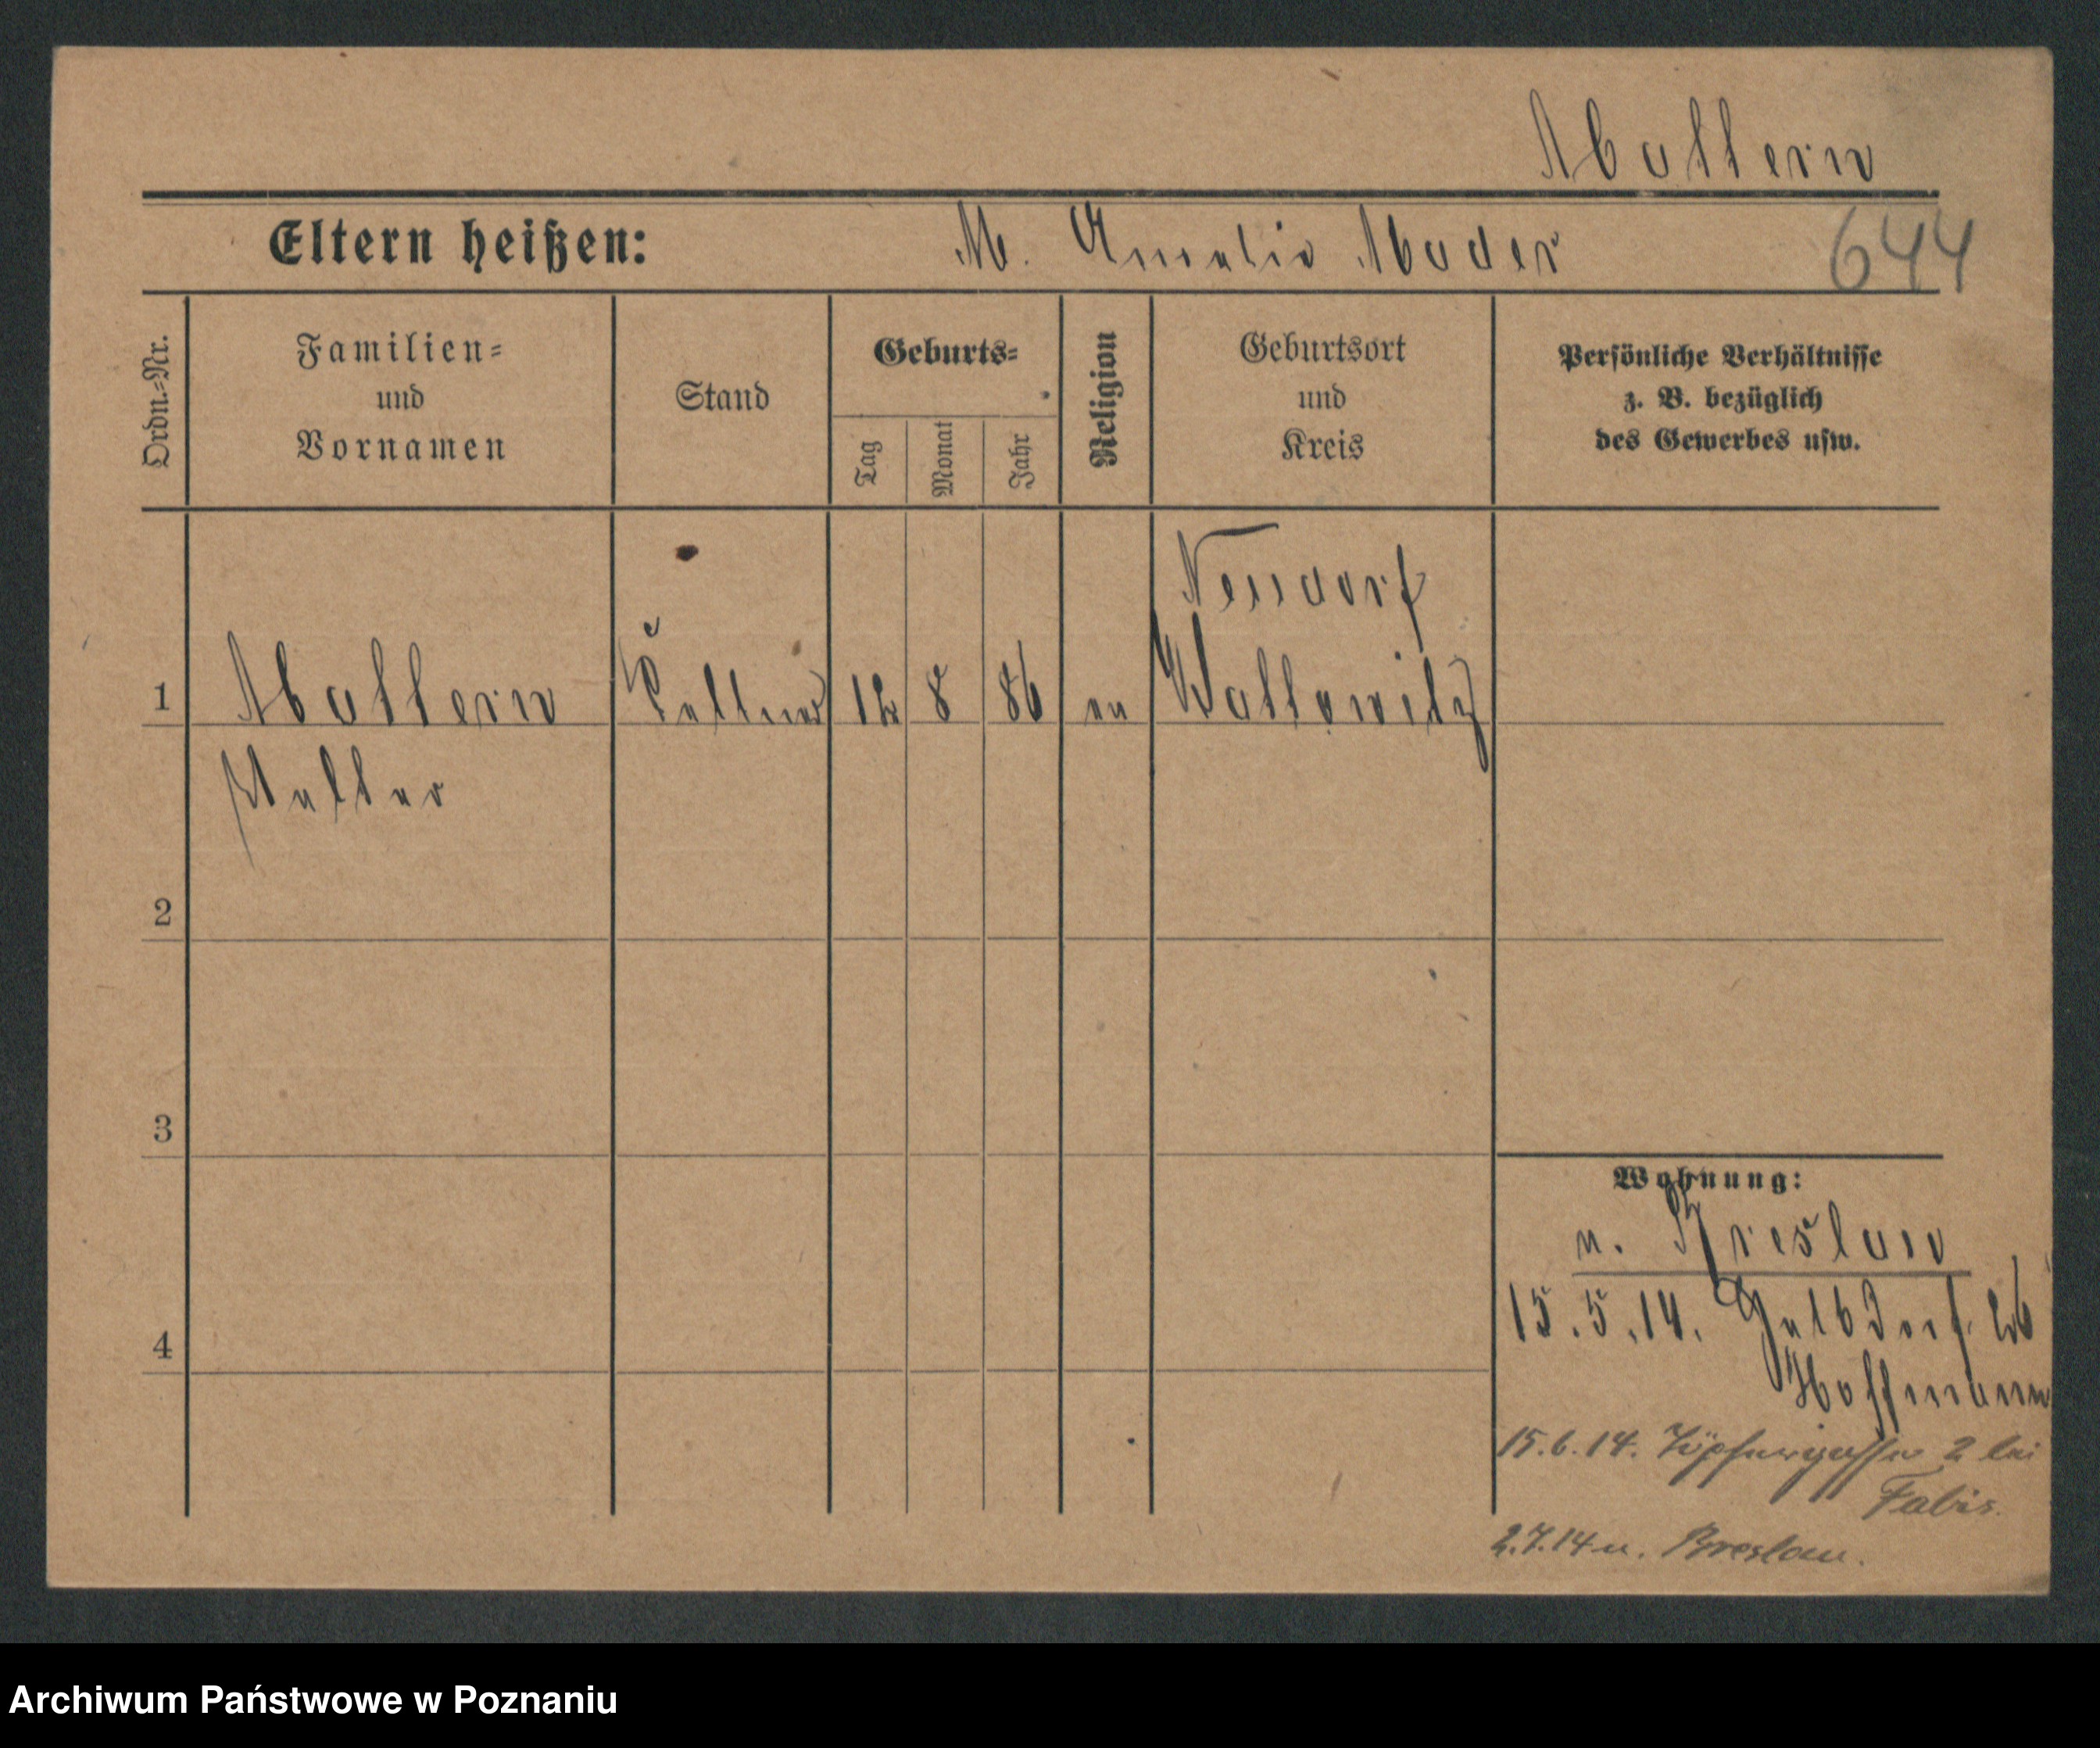 Abottern
Eltern heißen: M. Amalie Abader 644
Ordn.-Nr. Familien- und Vornamen Stand Geburts- Tag Monat Jahr Religion Geburtsort und Kreis Persönliche Verhältnisse z. B. bezüglich des Gewerbes usw.
Neudorf
1 Kellner 12 8 86 ev
Walter
2
3
Wohnung:
n. Breslau
4 15.5.14. Halbdorf. 26
Hoffmann
15.6.14. Töpfergasse 2 bei
Fabis.
2.7.14 n. Breslau.
Archiwum Państwowe w Poznaniu